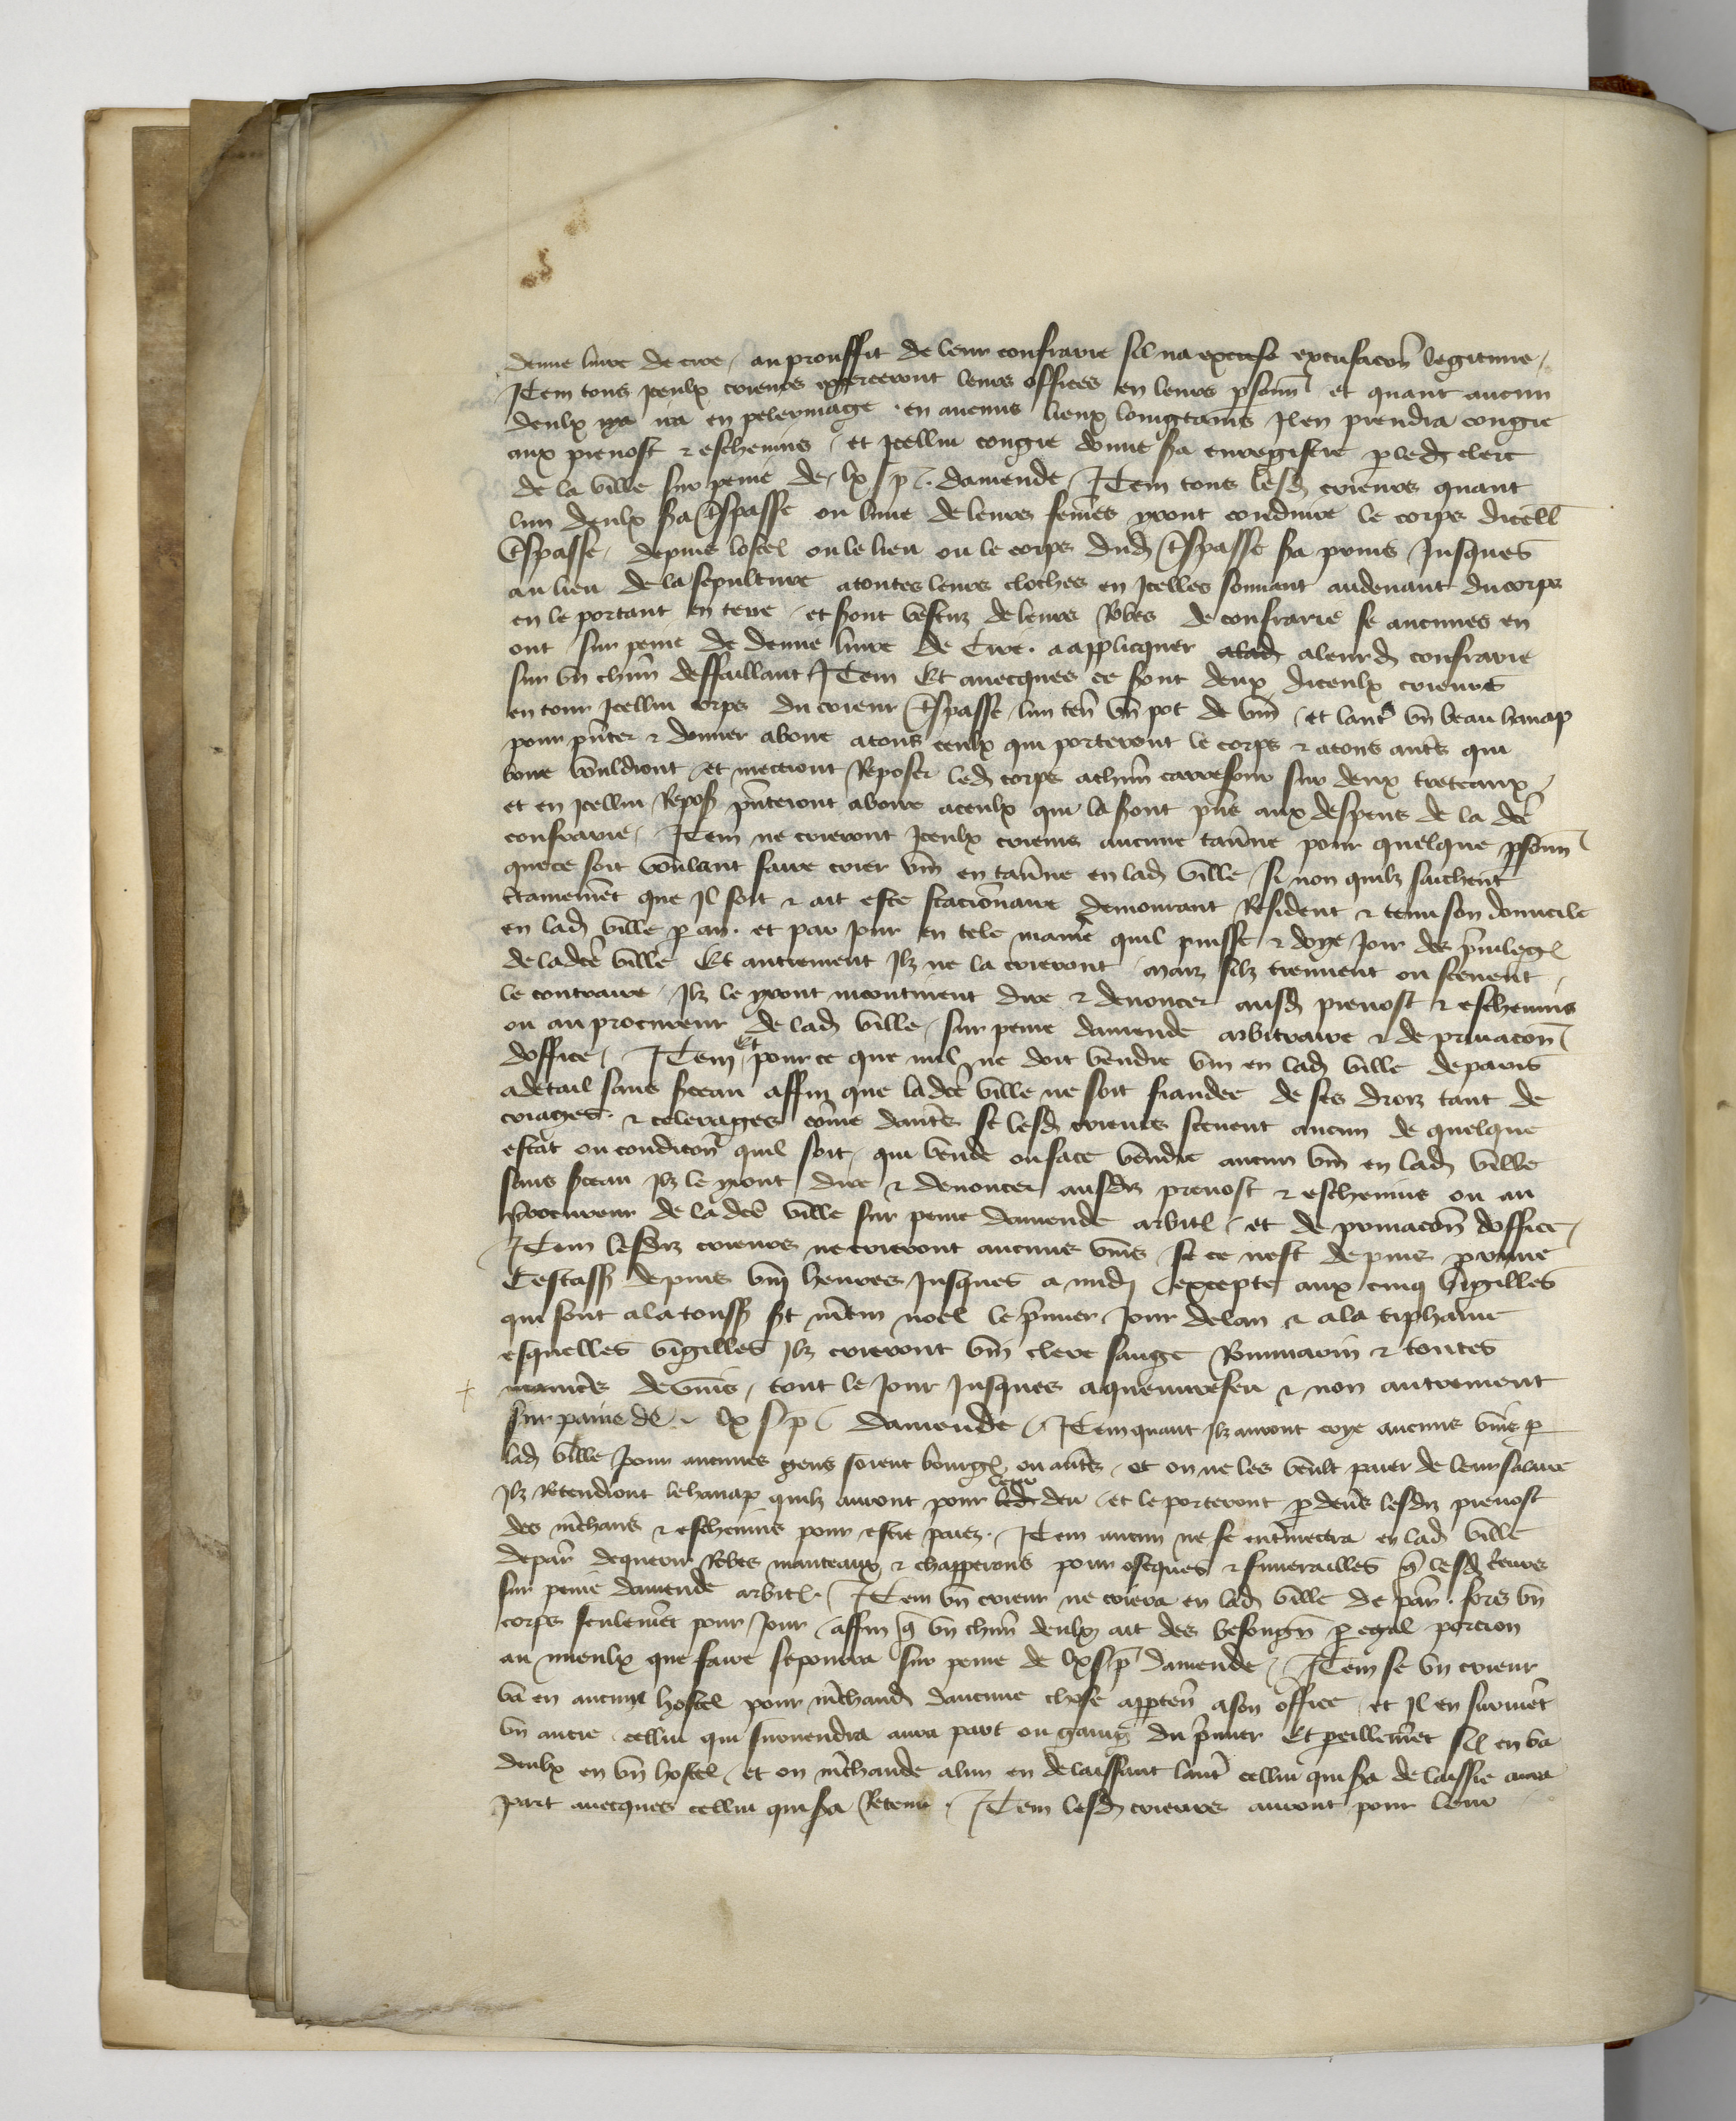 demie livre de cire, au prouffit de leur confrarie sil na excuse excusacon legitime,
Item tous iceulx crieurs exerceront leurs offices en leurs psonn et quant aucun
deulx yra en pelerinage en aucuns lieux loingtains Il en prendra congie
aux prevost & eschevins, et icellui congie donne sa enregistre p led clerc
de la ville sur peine de lx s p. damende, Item tous lesd crieurs quant
lun deulx sa tspasse ou lune de leurs femes yront conduire le corps dicell
tspasse, depuis lostel ou le lieu ou le corps dud tspasse sa prins Jusques
au lieu de la sepulture atoutes leurs cloches en Icelles sonnant audevant du corps
en le portant en terre, et sont vestuz de leurs Robes de confrarie se aucunes en
ont sur peine de demie livre de Cire. a applicquer alad aleurd confrarie
sur vn chun deffaillant Item Et avecques ce sont deux diceulx crieurs
entour Icellui corps du crieur tspasse lun ten vn pot de vin, et laut vn beau hanap
pour pnter & donner aboire atous ceulx qui porteront le corps & atous auts qui
boire vouldront, et mectront Reposer led corps achun carrefour sur deux treteaux,
et en Icellui Repos pnteront aboire aceulx qui la sont pns aux despens de la dce
confrarie, Item ne crieront Iceulx crieurs aucune taune pour quelque psonn
que ce soit voulant faire crier vin en taune en lad ville, si non quilz saichent
ctainemet que Il soit & ait este stacionaire demourant Resident & tenu son domicile
en lad ville p an. et par jour en tele manie quil puisse & doye Joir des pvileg
de ladce ville Et autrement Ilz ne la crieront, Maiz silz tiennent ou scevent
le contraire, Ilz le yront incontinent dire & denoncer ausd prevost & eschevins
ou au procureur de lad ville, sur peine damende arbitraire & de privacon
doffice, Item Et pour ce que nul ne doit vendre vin en lad ville de paris
adetail sans sceau affin que ladce ville ne soit fraudee de ses droiz tant de
criages & celerages come dauts se lesd crieurs scevent aucun de quelque
estat ou condicon quil soit, qui vende ou face vendre aucun vin en lad ville
sans sceau Ilz le yront dire & denoncer ausdiz prevost & eschevins ou au
procureur de la dce ville sur peine damende arbit, et de privacon doffice,
Item lesdiz crieurs ne crieront aucuns vins se ce nest depuis prime
Cestass depuis viij heures Jusques a midi, excepte aux cinq vigilles
qui sont ala touss st mtin noel le pmier Jour de lan & ala tiphaine
esquelles vigilles Ilz crieront vin clere sauge Rommarin & toutes
manies de vins, tout le Jour Jusques aqueuvrefeu & non autrement
sur paine de lx s p damende, Item quant Ilz auront crye aucuns vins p
lad ville pour aucunes gens soient bourg ou auts, et on ne les veult paier de leur salaire
Ilz Retendront le hanap quilz auront pour led leur deu, et le porteront p devs lesdiz prevost
des mchans & eschevins pour estre paiez. Item aucun ne se entmectra en lad ville
de par de querir Robes manteaux & chapperons pour obseques & funerailles q lesd crieurs
sur peine damende arbit. Item vn crieur ne criera en lad ville de par. fors vn
corps seulemet pour Jour, affin q vn chun deulx ait des besongn p egal porcion
au mieulx que faire se pourra sur peine de lx s p damende, Item se vn crieur
va en aucun hostel pour mchand daucune chose apten ason office, et Il en survient
vn autre, cellui qui survendra aura part ou gaing du pmier Et peillemet sil en va
deulx en vn hostel, et on mchande alun en delaissant laut cellui qui sa delaissie aura
part avecques cellui qui sa Retenu. Item lesd crieurs auront pour leur